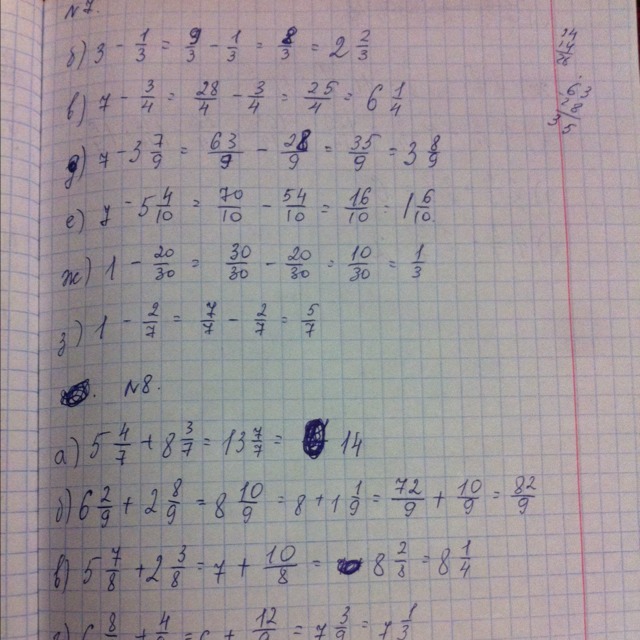 №7
б) 3 - 1/3 = 9/3 - 1/3 = 8/3 = 2 2/3
в) 7 - 3/4 = 28/4 - 3/4 = 25/4 = 6 1/4
д) 7 - 3 7/9 = 63/9 - 28/9 = 35/9 = 3 8/9
е) 7 - 5 4/10 = 70/10 - 54/10 = 16/10 = 1 6/10
ж) 1 - 20/30 = 30/30 - 20/30 = 10/30 = 1/3
з) 1 - 2/7 = 7/7 - 2/7 = 5/7
№8.
а) 5 4/7 + 8 3/7 = 13 7/7 = 14
б) 6 2/9 + 2 8/9 = 8 10/9 = 8 + 1 1/9 = 72/9 + 10/9 = 82/9
в) 5 7/8 + 2 3/8 = 7 + 10/8 = 8 2/8 = 8 1/4
6 8/9 + 4/9 = 6 + 12/9 = 7 3/9 = 7 1/3